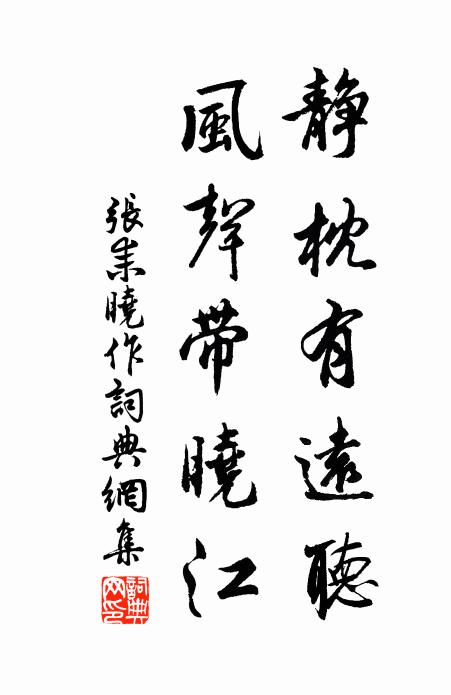 静枕有遠聽
風聲帶曉江
張耒曉作詞典網集
詞典网印